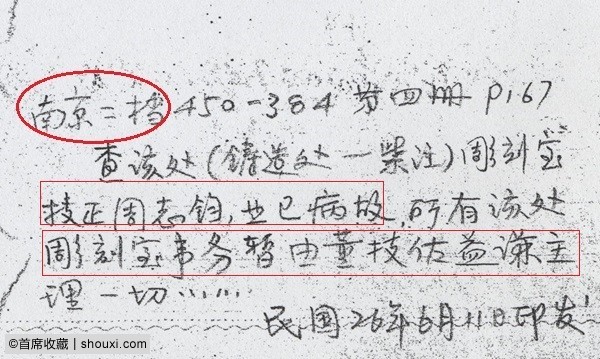 南京二档 450-384 第四册 P167
查该处(铸造处一柴注)彫刻室
技正周志钧,业已病故,所有该处
彫刻室事务暂由董技佐益谦主
理一切……
民国26年6月11日印发
©首席收藏 | shouxi.com